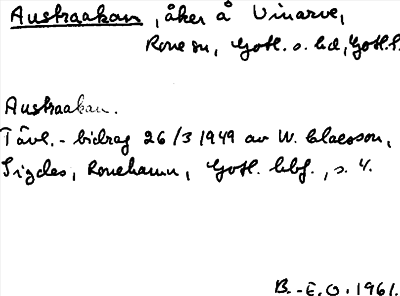 Austraakan, åker å Vinarve,
Rone sn, Gotl. s. hd, Gotl. l.
Austraakan.
Tävl. - bidrag 26/3 1949 av W. Claesson,
Sigdes, Ronehamn, Gotl. hbf., s. 4.
B.-E.O. 1961.